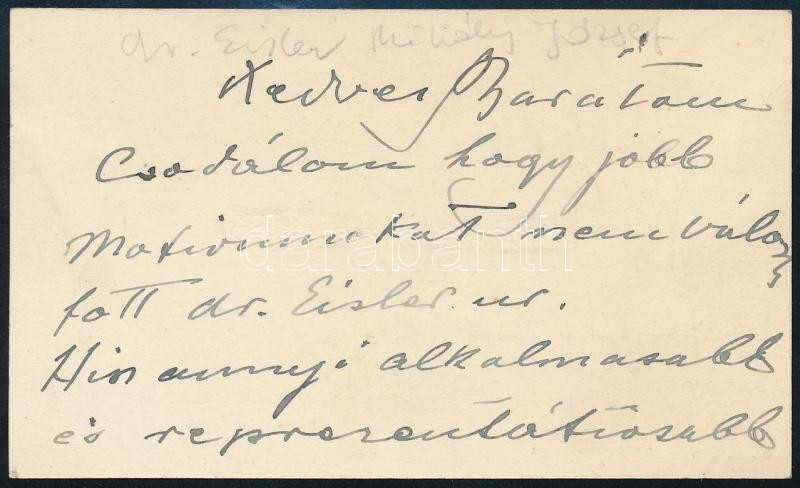 dr. Eisler Mihály József
Kedves Barátom
Csodálom hogy jobb
motivumokat nem válasz
tott dr. Eisler ur.
Hisz annyi alkalmasabb
és reprezentátiosabb
darabanth